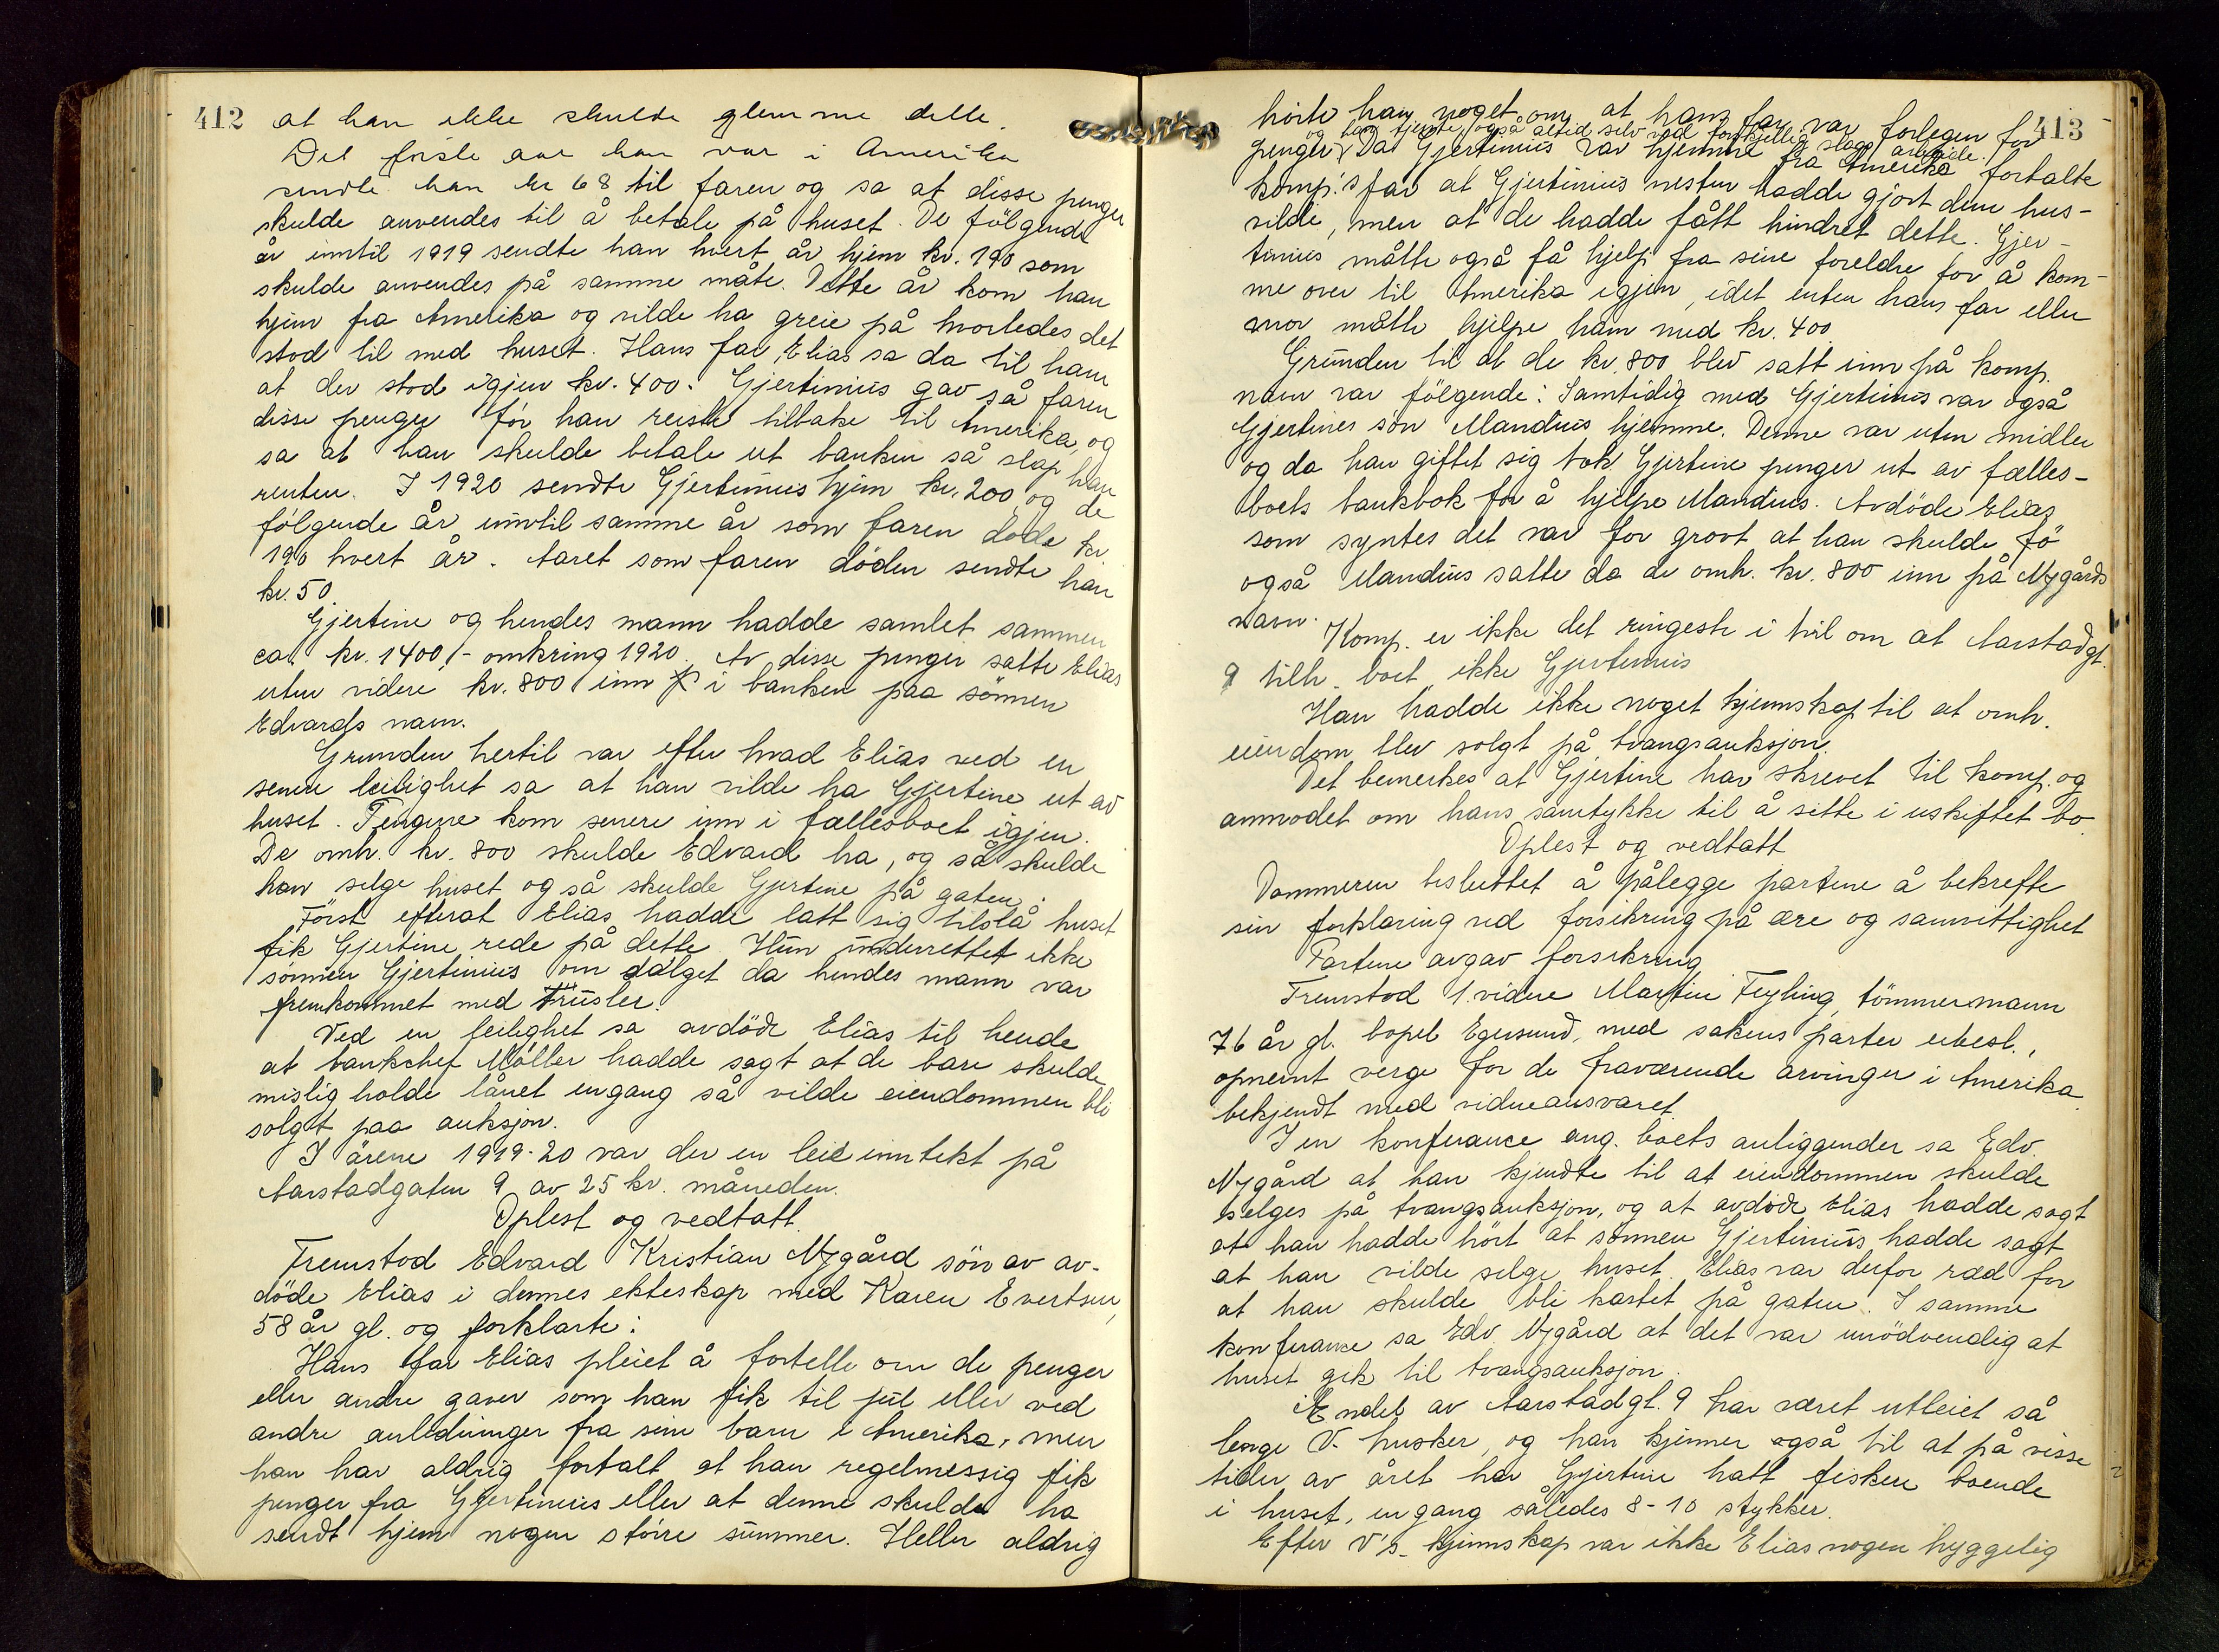 412
at han ikke skulde glemme dette.
Det første aar han var i Amerika
sendte han kr 68 til faren og sa at disse penger
skulde anvendes til å betale på huset. De følgende
år inntil 1919 sendte han hvert år hjem kr. 190 som
skulde anvendes på samme måte. Dette år kom han
hjem fra Amerika og vilde ha greie på hvorledes det
stod til med huset. Hans far, Elias sa da til ham
at der stod igjen kr. 400. Gjertinius gav så faren
disse penger før han reiste tilbake til Amerika, og
sa at han skulde betale ut banken så slap han
renten. I 1920 sendte Gjertinius hjem kr. 200 og de
følgende år inntil samme år som faren døde kr
190 hvert år. Aaret som faren døden sendte han
kr. 50
Gjertine og hendes mann hadde samlet sammen
ca. kr. 1400,- omkring 1920. Av disse penger satte Elias
uten videre kr. 800 inn i banken paa sønnen
Edvards navn.
Grunden hertil var efter hvad Elias ved en
senere leilighet sa at han vilde ha Gjertine ut av
huset. Pengene kom senere inn i fællesboet igjen.
De omh. kr. 800 skulde Edvard ha, og så skulde
han selge huset og så skulde Gjertine på gaten.
Først efterat Elias hadde latt sig tilslå huset
fik Gjertine rede på dette. Hun underrettet ikke
sønnen Gjertinius om salget da hendes mann var
fremkommet med trusler.
Ved en leilighet sa avdøde Elias til hende
at bankchef Møller hadde sagt at de bare skulde
misligholde lånet engang så vilde eiendommen bli
solgt paa auksjon.
I årene 1919-20 var der en leieinntekt på
Aarstadgaten 9 av 25 kr. måneden.
Oplest og vedtatt.
Fremstod Edvard Kristian Nygård søn av av-
døde Elias i dennes ekteskap med Karen Evertsen,
58 år gl. og forklarte:
Hans far Elias pleiet å fortelle om de penger
eller andre gaver som han fik til jul eller ved
andre anledninger fra sine barn i Amerika, men
han har aldrig fortalt at han regelmessig fik
penger fra Gjertinius eller at denne skulde ha
sendt hjem nogen større summer. Heller aldrig
413
hørte han noget om at hans far var forlegen for
og han tjente også altid selv ved forskjellig slags arbeide.
penger. Da Gjertinius var hjemme fra Amerika fortalte
komp.'s far at Gjertinius nesten hadde gjort dem hus-
vilde, men at de hadde fått hindret dette. Gjer-
tinius måtte også få hjelp fra sine foreldre for å kom-
me over til Amerika igjen, idet enten hans far eller
mor måtte hjelpe ham med kr. 400
Grunden til at de kr. 800 blev satt inn på komp.
navn var følgende: Samtidig med Gjertinius var også
Gjertines søn Mandius hjemme. Denne var uten midler
og da han giftet sig tok Gjertine penger ut av fælles-
boets bankbok for å hjelpe Mandius. Avdøde Elias
som syntes det var for grovt at han skulde fø
også Mandius satte da de omh. kr. 800 inn på Nygårds
navn.
Komp. er ikke det ringeste i tvil om at Aarstadgt.
9 tilh. boet ikke Gjertinius
Han hadde ikke noget kjennskap til at omh.
eiendom blev solgt på tvangsauksjon.
Det bemerkes at Gjertine har skrevet til komp. og
anmodet om hans samtykke til å sitte i uskiftet bo.
Oplest og vedtatt
Dommeren besluttet å pålegge partene å bekrefte
sin forklaring ved forsikring på ære og samvittighet
Partene avgav forsikring
Fremstod 1. vidne Martin Feyling, tømmermann
76 år gl. bopel Egersund, med sakens parter ubesl.,
opnevnt verge for de fraværende arvinger i Amerika,
bekjendt med vidneansvaret.
I en konferance ang. boets anliggender sa Edv.
Nygård at han kjendte til at eiendommen skulde
selges på tvangsauksjon, og at avdøde Elias hadde sagt
at han hadde hørt at sønnen Gjertinius hadde sagt
at han vilde selge huset. Elias var derfor ræd for
at han skulde bli kastet på gaten. I samme
konferance sa Edv. Nygård at det var unødvendig at
huset gik til tvangsauksjon.
Endel av Aarstadgt. 9 har været utleiet så
lenge V. husker, og han kjenner også til at på visse
tider av året har Gjertine hatt fiskere boende
i huset, en gang således 8-10 stykker.
Efter V's. kjennskap var ikke Elias nogen hyggelig